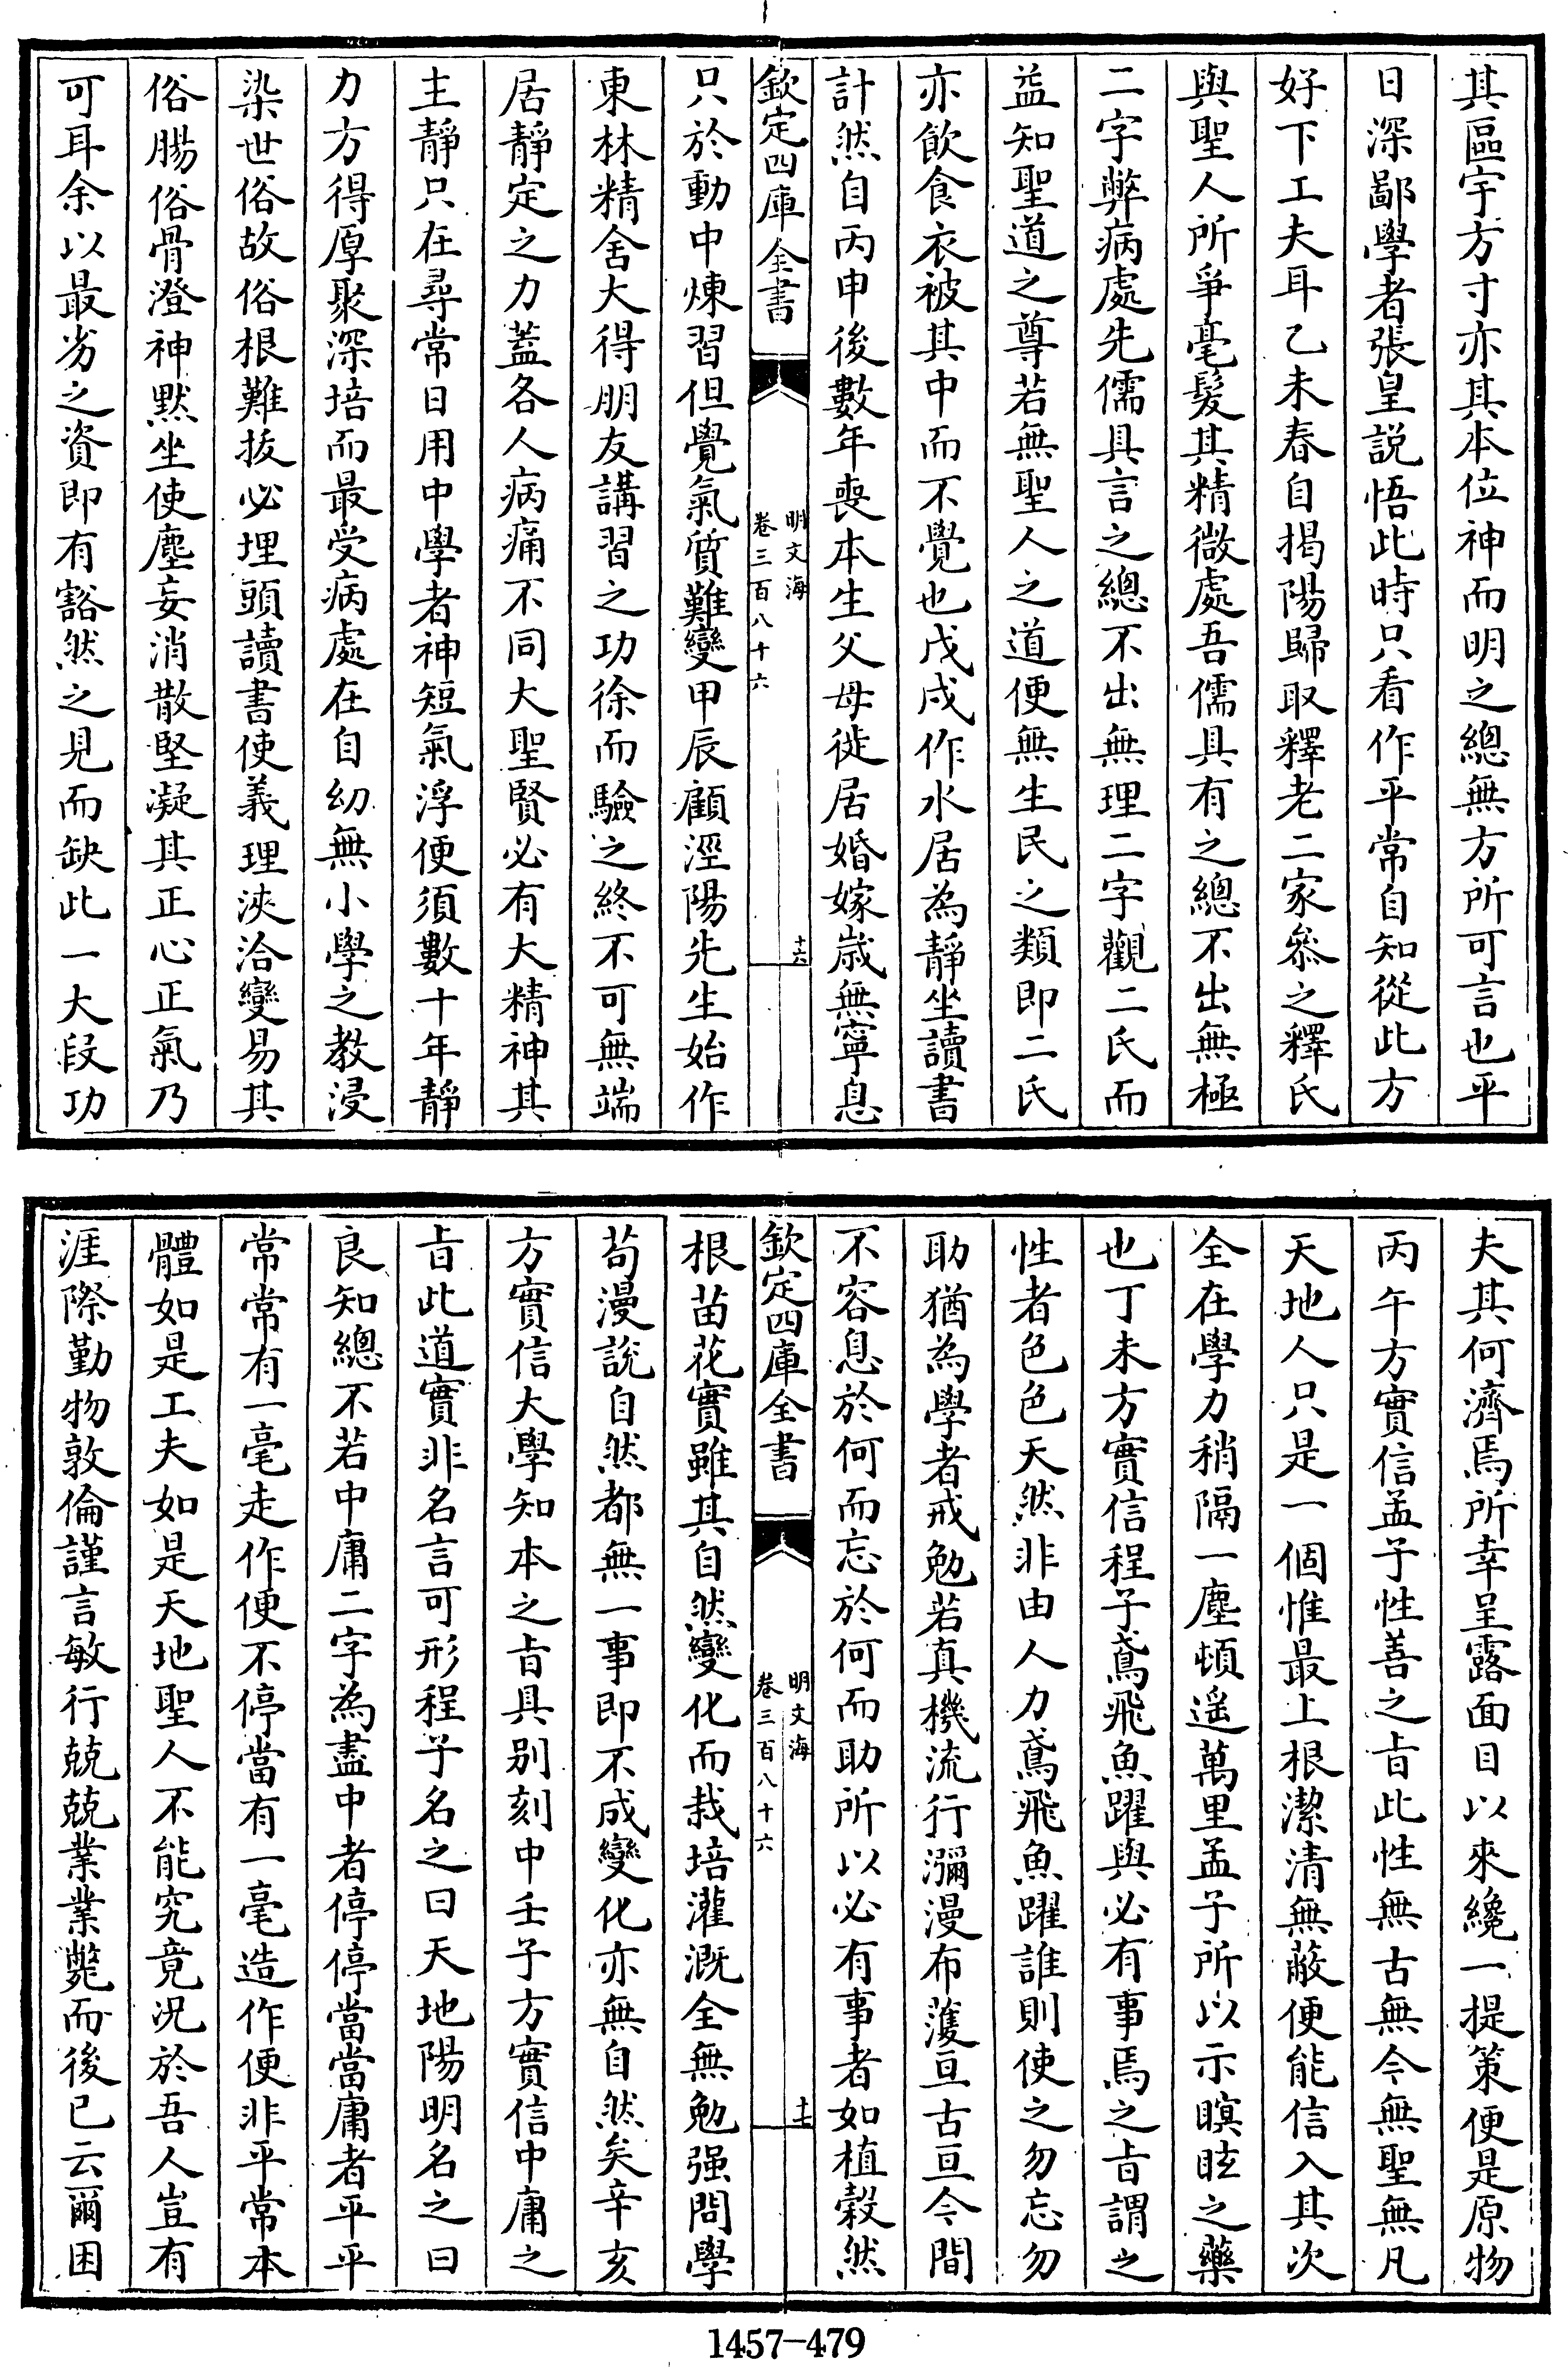 其區宇方寸亦其本位神而明之總無方所可言也平
日深鄙學者張皇説悟此時只看作平常自知從此方
好下工夫耳乙未春自揭陽歸取釋老二家參之釋氏
與聖人所爭毫髮其精微處吾儒具有之總不出無極
二字弊病處先儒具言之總不出無理二字觀二氏而
益知聖道之尊若無聖人之道便無生民之類即二氏
亦飲食衣被其中而不覺也戊戌作水居為靜坐讀書
計然自丙申後數年喪本生父母徙居婚嫁歳無寧息
欽定四庫全書
明文海
卷三百八十六
十六
只於動中煉習但覺氣質難變甲辰顧涇陽先生始作
東林精舍大得朋友講習之功徐而驗之終不可無端
居靜定之力蓋各人病痛不同大聖賢必有大精神其
主靜只在尋常日用中學者神短氣浮便須數十年靜
力方得厚聚深培而最受病處在自幼無小學之教浸
染世俗故俗根難拔必埋頭讀書使義理浹洽變易其
俗腸俗骨澄神黙坐使塵妄消散堅凝其正心正氣乃
可耳余以最劣之資即有豁然之見而缺此一大段功
夫其何濟焉所幸呈露面目以來纔一提策便是原物
丙午方實信孟子性善之㫖此性無古無今無聖無凡
天地人只是一個惟最上根潔清無蔽便能信入其次
全在學力稍隔一塵頓遥萬里孟子所以示瞑眩之藥
也丁未方實信程子鳶飛魚躍與必有事焉之㫖謂之
性者色色天然非由人力鳶飛魚躍誰則使之勿忘勿
助猶為學者戒勉若真機流行瀰漫布濩亘古亘今間
不容息於何而忘於何而助所以必有事者如植穀然
欽定四庫全書
明文海
卷三百八十六
十七
根苗花實雖其自然變化而栽培灌溉全無勉强問學
苟漫說自然都無一事即不成變化亦無自然矣辛亥
方實信大學知本之㫖具別刻中壬子方實信中庸之
㫖此道實非名言可形程子名之曰天地陽明名之曰
良知總不若中庸二字為盡中者停停當當庸者平平
常常有一毫走作便不停當有一毫造作便非平常本
體如是工夫如是天地聖人不能究竟況於吾人豈有
涯際勤物敦倫謹言敏行兢兢業業斃而後已云爾困
1457-479